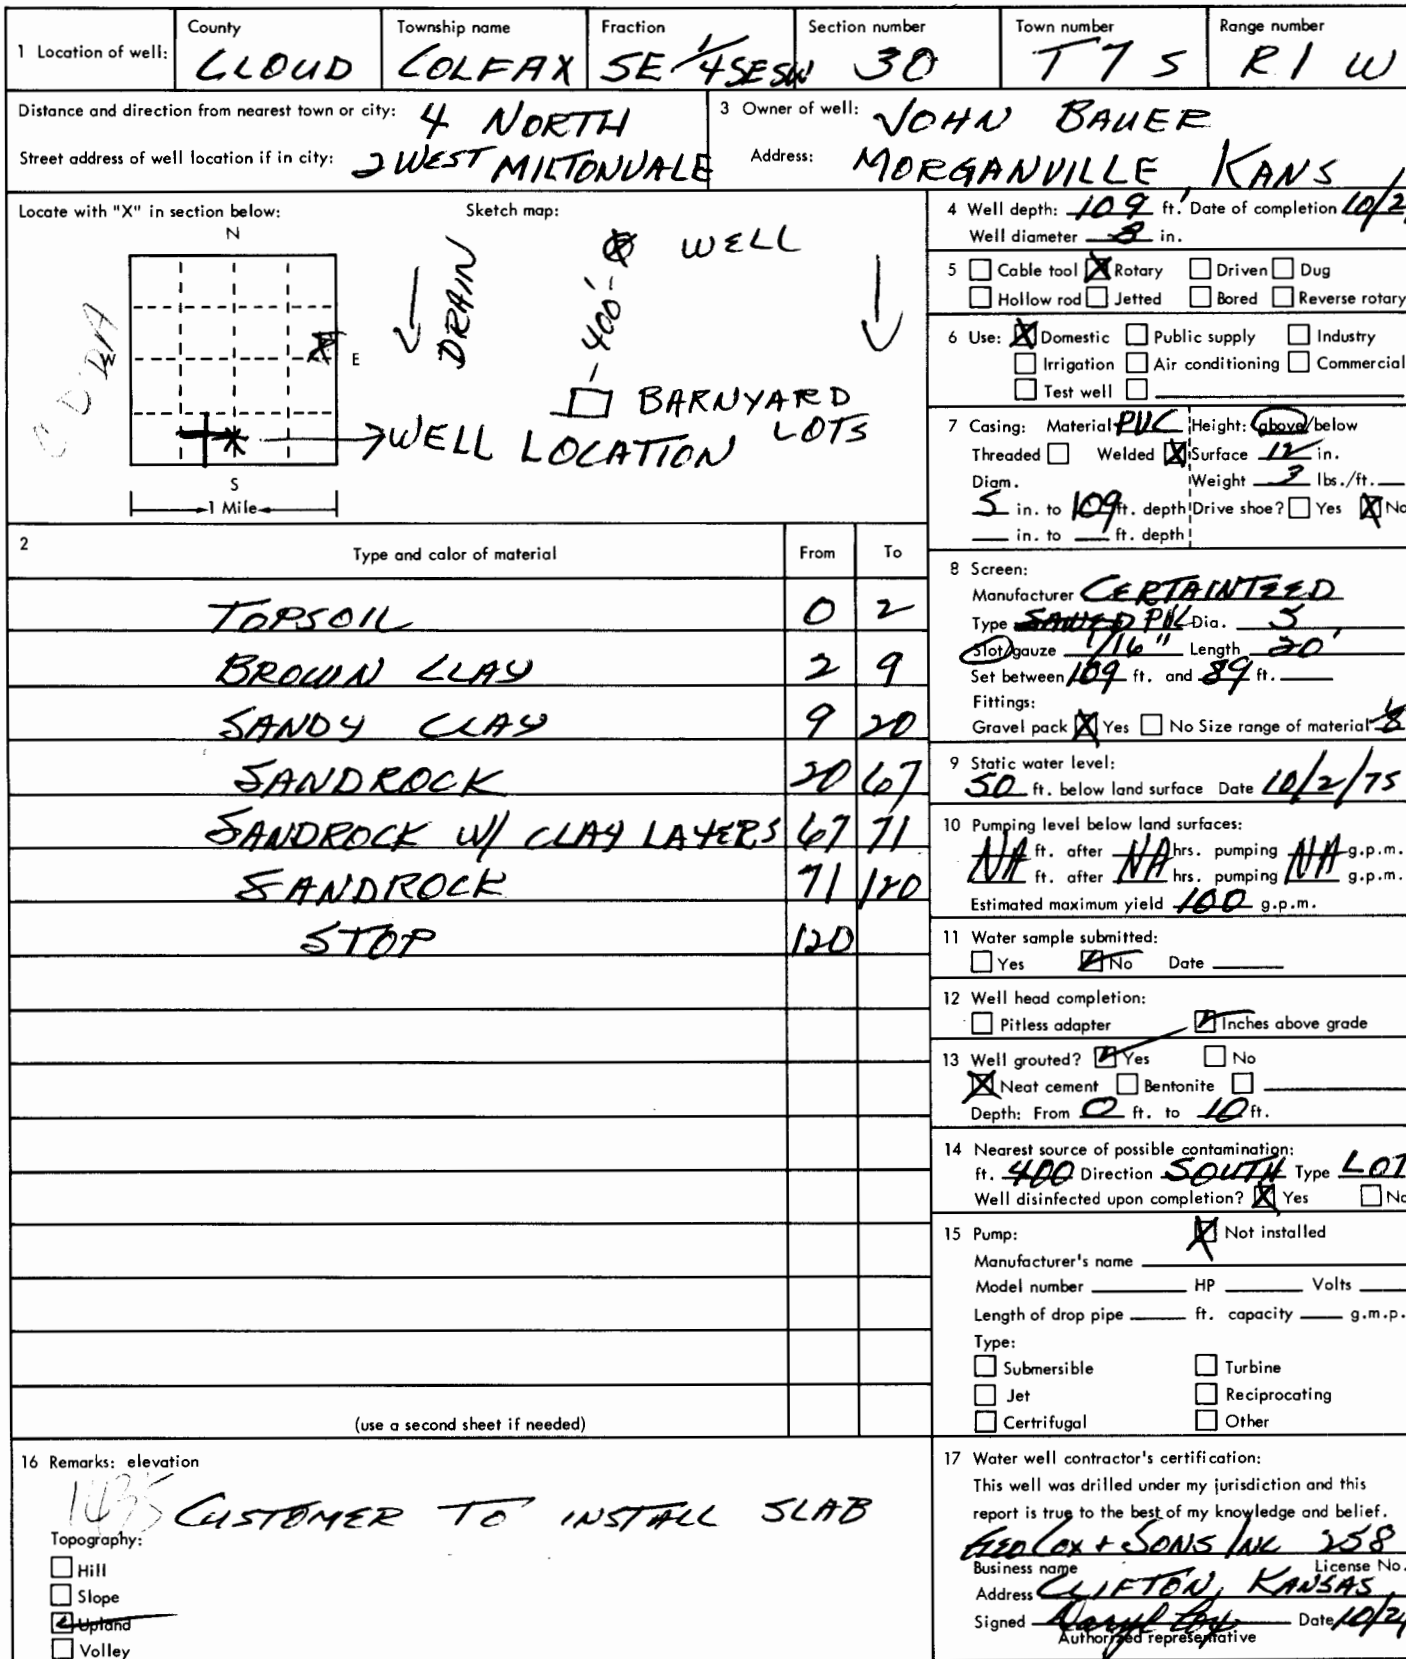 1 Location of well: County CLOUD Township name COLFAX Fraction SE 1/4 SE SW Section number 30 Town number T 7 S Range number R 1 W
Distance and direction from nearest town or city: 4 NORTH
Street address of well location if in city: 2 WEST MILTONVALE
3 Owner of well: JOHN BAUER
Address: MORGANVILLE, KANS
Locate with "X" in section below:
N
W
E
S
1 Mile
Sketch map:
WELL
DRAIN
400'
BARNYARD
LOTS
WELL LOCATION
2 Type and color of material From To
TOPSOIL 0 2
BROWN CLAY 2 9
SANDY CLAY 9 20
SANDROCK 20 67
SANDROCK W/ CLAY LAYERS 67 71
SANDROCK 71 120
STOP 120
(use a second sheet if needed)
4 Well depth: 109 ft. Date of completion 10/2
Well diameter 8 in.
5 Cable tool Rotary Driven Dug
Hollow rod Jetted Bored Reverse rotary
6 Use: Domestic Public supply Industry
Irrigation Air conditioning Commercial
Test well
7 Casing: Material PVC Height: above/below
Threaded Welded Surface 12 in.
Diam. Weight lbs./ft.
5 in. to 109 ft. depth Drive shoe? Yes No
in. to ft. depth
8 Screen:
Manufacturer CERTAINTEED
Type SAWED PVC Dia. 5
Slot/gauze 1/16" Length 20'
Set between 109 ft. and 89 ft.
Fittings:
Gravel pack Yes No Size range of material
9 Static water level:
50 ft. below land surface Date 10/2/75
10 Pumping level below land surfaces:
NA ft. after NA hrs. pumping NA g.p.m.
ft. after hrs. pumping g.p.m.
Estimated maximum yield 100 g.p.m.
11 Water sample submitted:
Yes No Date
12 Well head completion:
Pitless adapter Inches above grade
13 Well grouted? Yes No
Neat cement Bentonite
Depth: From 0 ft. to 10 ft.
14 Nearest source of possible contamination:
ft. 400 Direction SOUTH Type LOT
Well disinfected upon completion? Yes No
15 Pump: Not installed
Manufacturer's name
Model number HP Volts
Length of drop pipe ft. capacity g.m.p.
Type:
Submersible Turbine
Jet Reciprocating
Certrifugal Other
16 Remarks: elevation
1435
CUSTOMER TO INSTALL SLAB
Topography:
Hill
Slope
Upland
Volley
17 Water well contractor's certification:
This well was drilled under my jurisdiction and this
report is true to the best of my knowledge and belief.
GEO COX + SONS INC 258
Business name License No.
Address CLIFTON, KANSAS
Signed Daryl Cox Date 10/2
Authorized representative